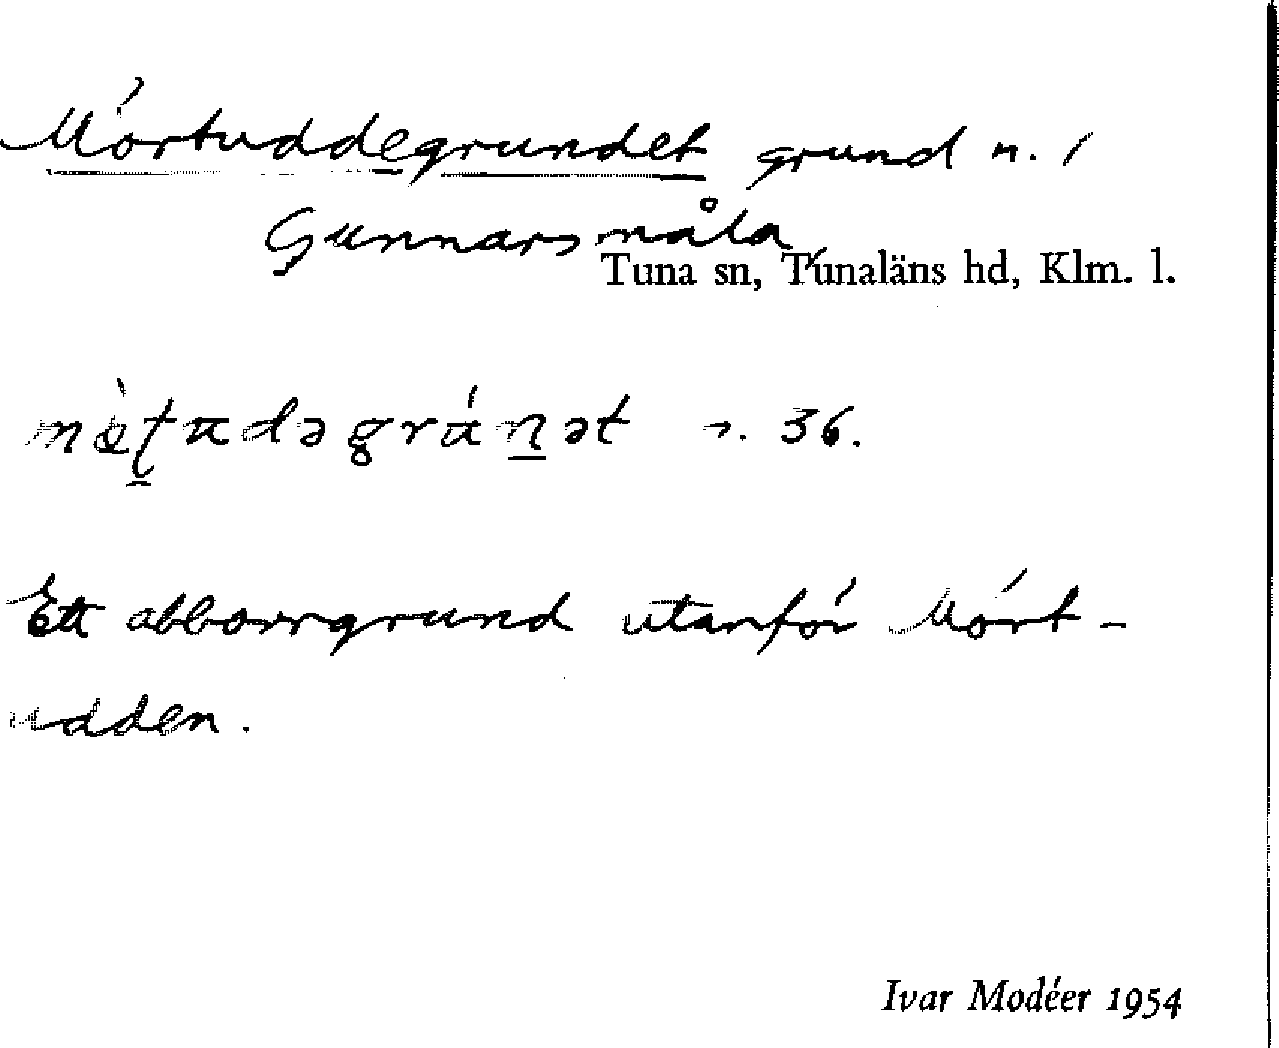 Mörtuddegrundet grund n. /
Gunnarsmåla
Tuna sn, Tunaläns hd, Klm. l.
n. 36.
Ett abborrgrund utanför Mört-
udden.
Ivar Modéer 1954